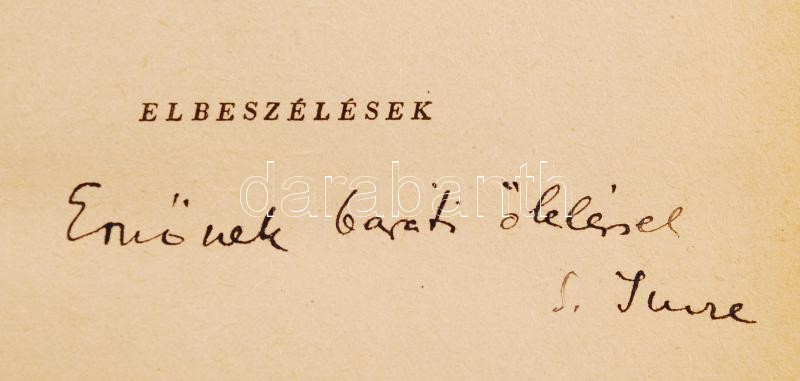 ELBESZÉLÉSEK
darabanth
Ernőnek baráti öleléssel
S. Imre